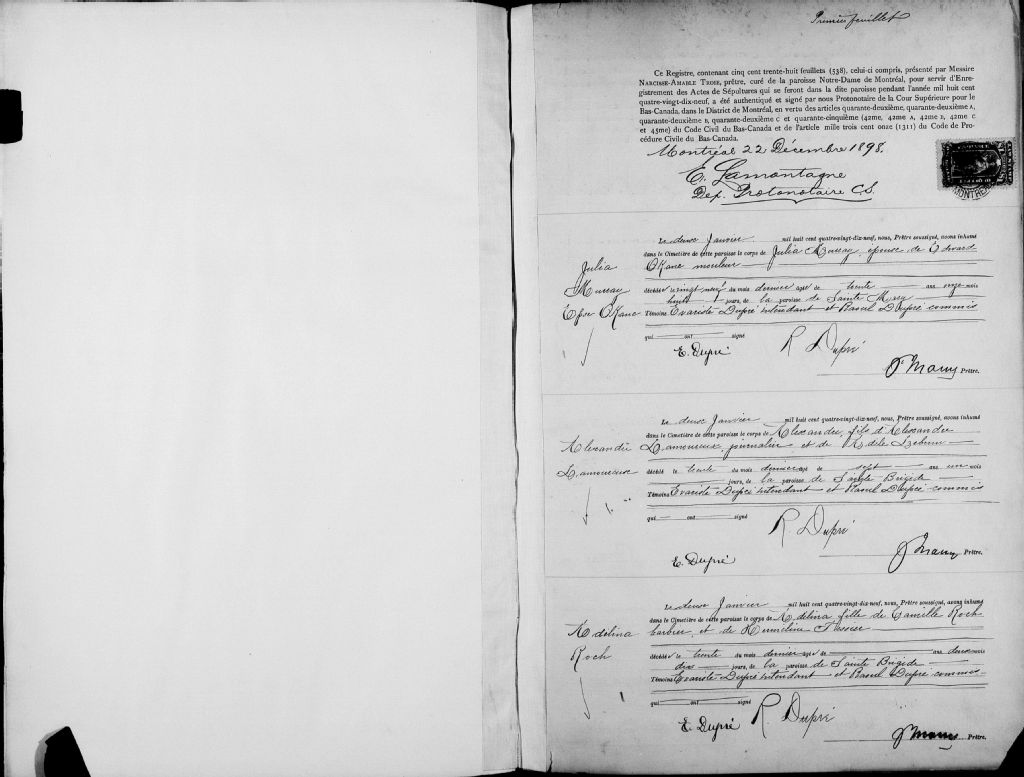 Premier feuillet
Ce Registre, contenant cinq cent trente-huit feuillets (538), celui-ci compris, présenté par Messire
Narcisse-Amable Troie, prêtre, curé de la paroisse Notre-Dame de Montréal, pour servir d'Enre-
gistrement des Actes de Sépultures qui se feront dans la dite paroisse pendant l'année mil huit cent
quatre-vingt-dix-neuf, a été authentiqué et signé par nous Protonotaire de la Cour Supérieure pour le
Bas-Canada, dans le District de Montréal, en vertu des articles quarante, quarante-deuxième A,
quarante-deuxième B, quarante-deuxième C et quarante-cinquième (42me, 42me A, 42me B, 42me C
et 45me) du Code Civil du Bas-Canada et de l'article mille trois cent onze (1311) du Code de Pro-
cédure Civile du Bas-Canada.
Montréal 22 Décembre 1898.
E. Lamontagne
Dep. Protonotaire C.S.
Le deux Janvier mil huit cent quatre-vingt-dix-neuf, nous, Prêtre soussigné, avons inhumé
dans le Cimetière de cette paroisse le corps de Julia Murray, épouse de Edward
O'Kane mouleur
Julia
Murray
Epse O'Kane
décédée le vingt neuf du mois dernier agée de trente ans onze mois
huit jours, de la paroisse de Sainte Mary
Témoins Evariste Dupré intendant et Raoul Dupré commis
qui ont signé
E. Dupré R Dupré
Prêtre.
Le deux Janvier mil huit cent quatre-vingt-dix-neuf, nous, Prêtre soussigné, avons inhumé
dans le Cimetière de cette paroisse le corps de Alexandre, fils d'Alexandre
Lamoureux, journalier et de Adèle
Alexandre
Lamoureux
décédé le trente du mois dernier agé de sept ans un mois
jours, de la paroisse de Sainte Brigide
Témoins Evariste Dupré intendant et Raoul Dupré commis
qui ont signé
R. Dupré
E. Dupré
Prêtre.
Le deux Janvier mil huit cent quatre-vingt-dix-neuf, nous, Prêtre soussigné, avons inhumé
dans le Cimetière de cette paroisse le corps de Adélina fille de Camille Roch
barbier, et de Herméline Tessier
Adélina
Roch
décédée le trente du mois dernier agée de ans deux mois
dix jours, de la paroisse de Sainte Brigide
Témoins Evariste Dupré intendant et Raoul Dupré commis
qui ont signé
E. Dupré R. Dupré
Prêtre.